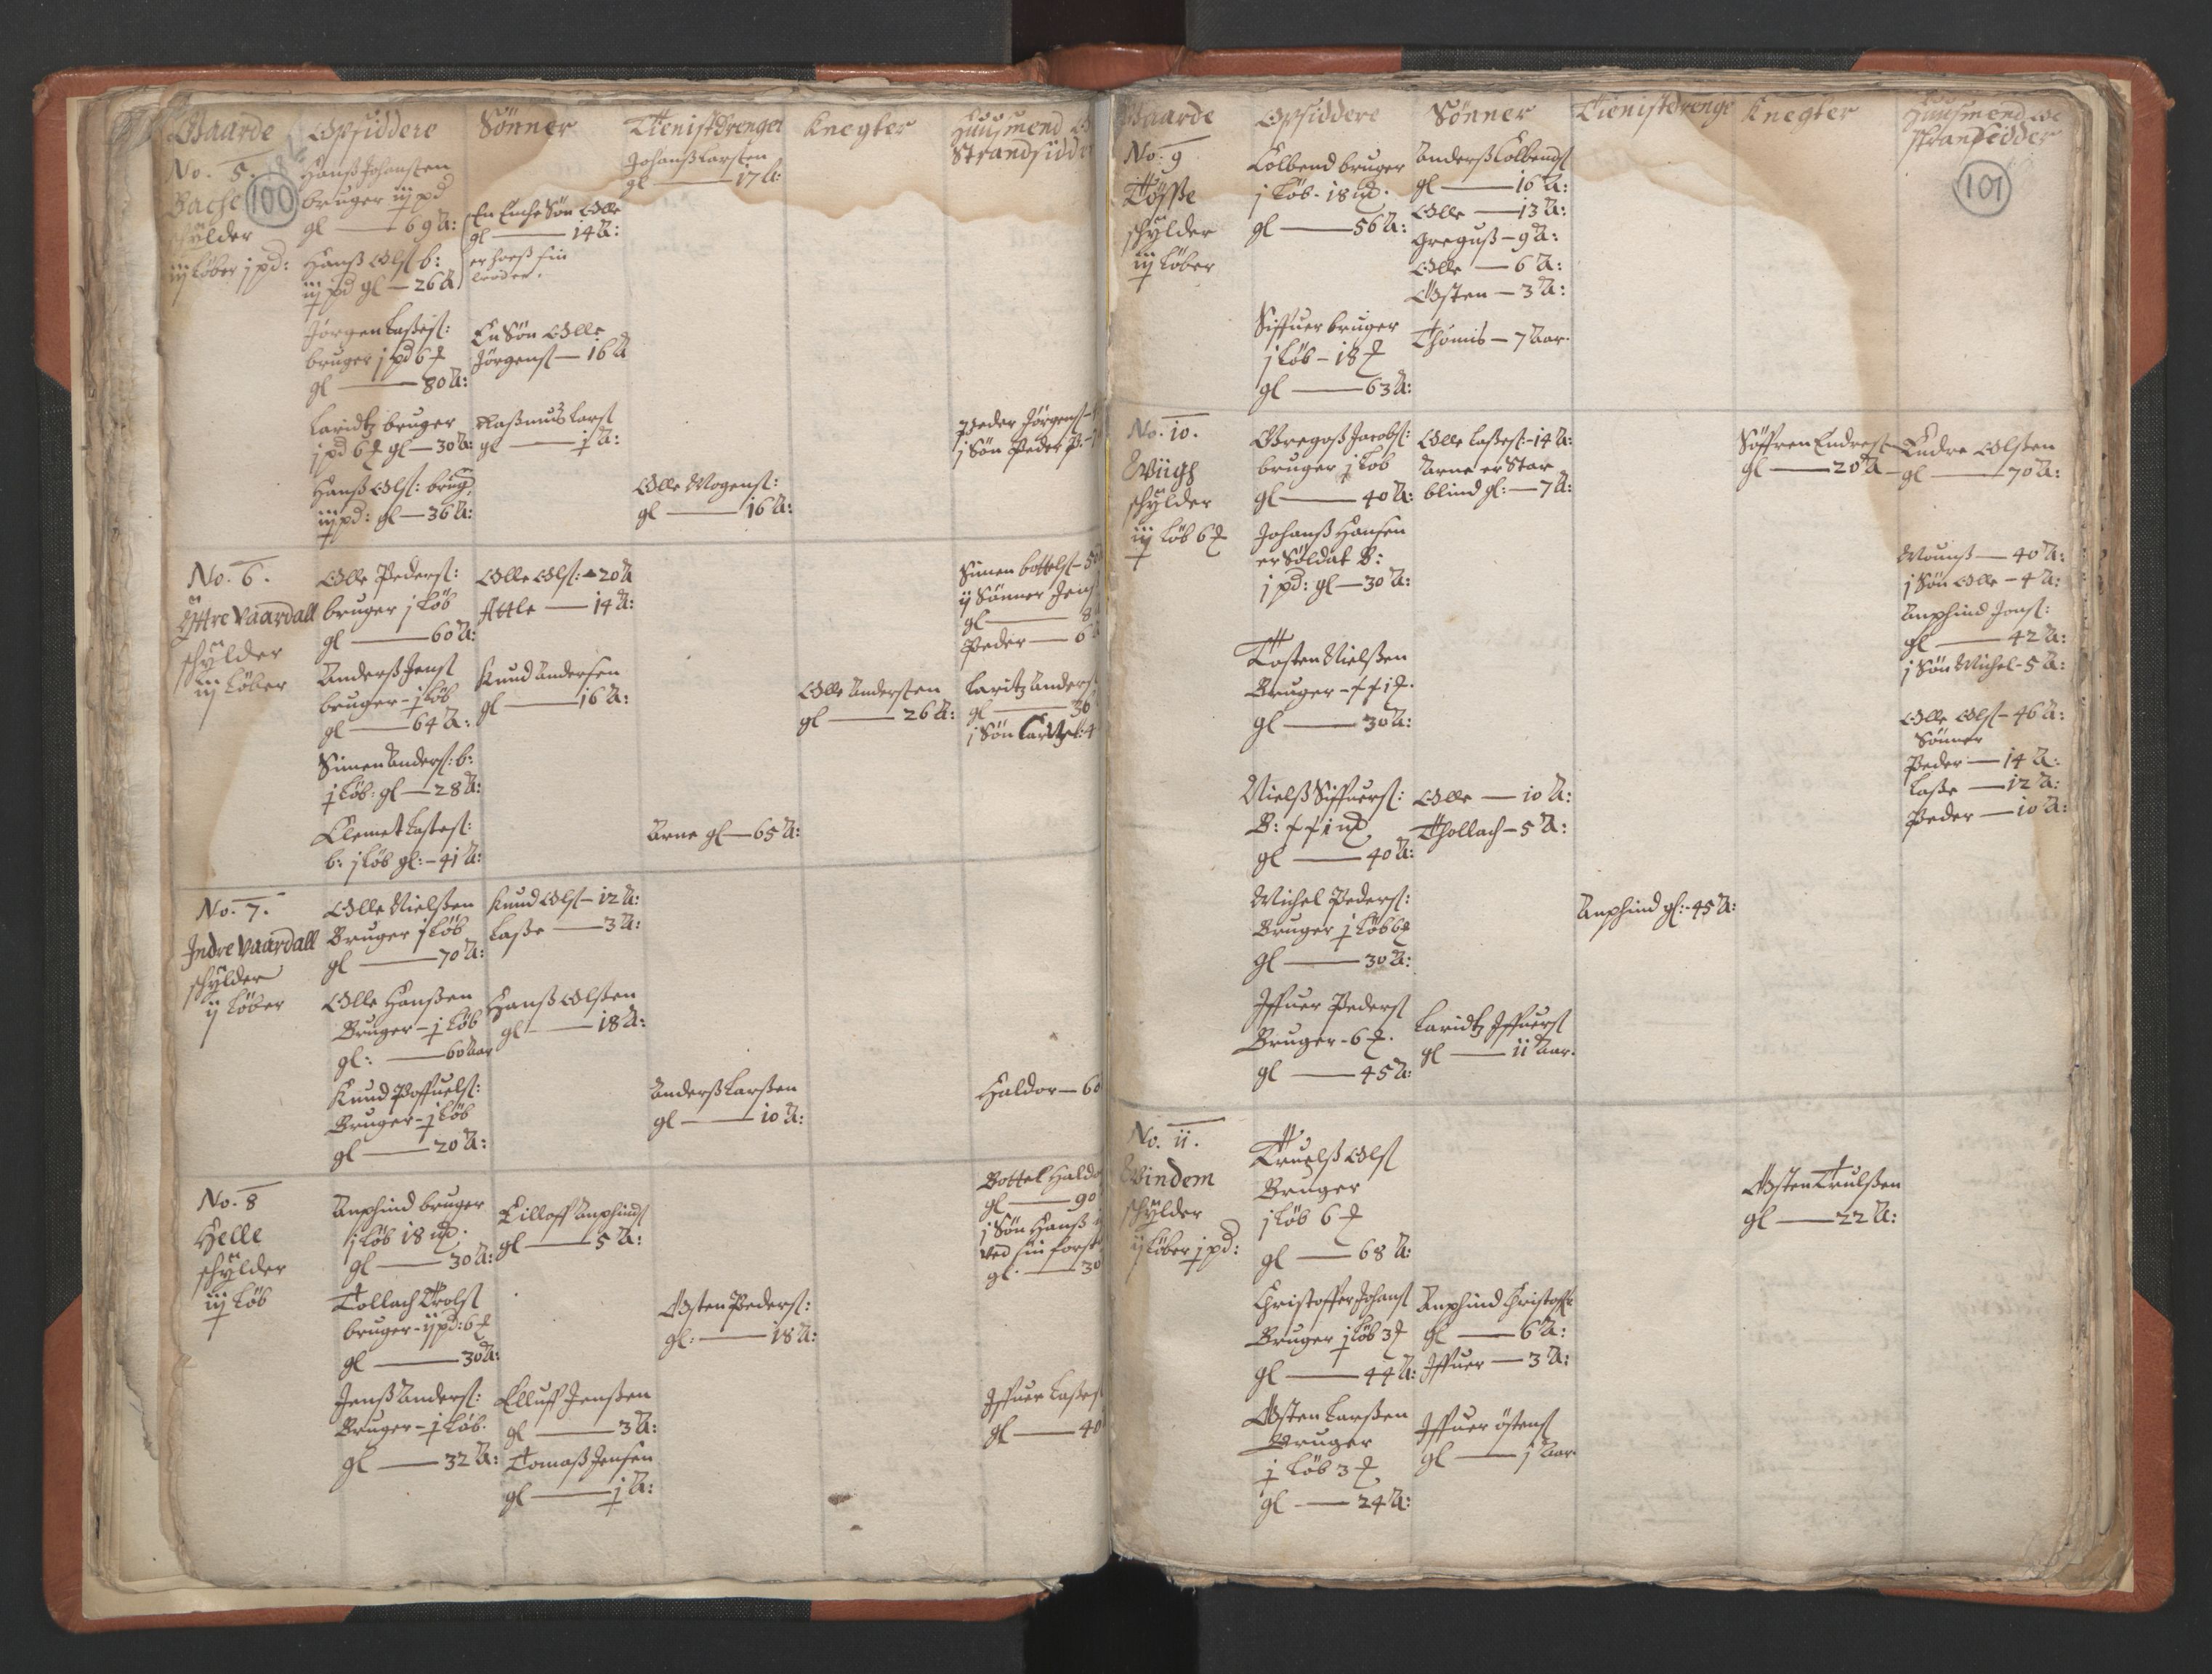 Gaarde Opsiddere Sønner Tienistdrenge Knegter Huusmend
Strandsidd
No. 5.
100
Bache
schÿlder
iij Løber j pd:
Hanß Johansten
bruger iij pd
gl — 69 A:
Hanß Olss b:
iij pd gl — 26 A
Jørgen Laßess:
bruger j pd 6
gl — 80 A:
Laridtz bruger
j pd 6 gl — 30 A:
Hanß Olss: brug
iij pd: gl — 36 A:
En Søn Olle
gl — 14 A:
En Søn Olle
Jørgenss — 16 A
Raßmus Larss
gl — j A:
Johanß Larsten
gl — 17 A:
Olle Mogenss:
gl — 16 A:
Peder Jørgenss
j Søn Peder P.
No. 6.
Ÿttre Vaardall
schÿlder
iij Løber
Olle Pederss:
bruger j Løb
gl — 60 A:
Anderß Jenss
bruger - j Løb
gl — 64 A:
Simen Anderss: b:
j Løb: gl — 28 A:
Clemet Laßess:
b: j Løb gl: — 41 A:
Olle Olss: — 20 A
Attle — 14 A:
Knud Andersen
gl — 16 A:
Arne gl — 65 A:
Olle Andersten
gl — 26 A:
Simen bottelss — 50
ij Sønner Jenß
gl — 8
Peder — 6
Laritz Anderss
gl — 36
j Søn
No. 7.
Indre Vaardall
schÿlder
ij Løber
Olle Nielßen
Bruger j Løb
gl — 70 A:
Olle Hanßen
Bruger — j Løb
gl: — 60 Aar
Knud Poffuelss:
Bruger - j Løb
gl — 20 A:
Knud Olss — 12 A:
Laße — 3 A:
Hanß Olsten
gl — 18 A:
Anderß Larßen
gl — 10 A:
Haldor — 60
No. 8
Helle
schÿlder
iij Løb
Anphind bruger
j Løb 18
gl — 30 A:
Tollach Trolss
bruger - ij pd: 6
gl — 30 A:
Jenß Anderss:
Bruger - j Løb.
gl — 32 A:
Eilloff Anphindss
gl — 5 A:
Elluff Jenßen
gl — 3 A:
Tomaß Jensen
gl — j A:
Østen Pederss:
gl: — 18 A:
Bottel Haldo
gl — 90
j Søn Hanß
ved sin forst
gl. — 30
Iffuer Laßess
gl — 40
Gaarde Opsiddere Sønner Tienistdrenge Knegter Huusmend
Stransidder
101
No. 9
Tøsße
schÿlder
iij Løber
Colbend bruger
j Løb. 18
gl — 56 A:
Siffuer bruger
j Løb — 18
gl — 63 A:
Anderß Colbendss
gl — 16 A:
Olle — 13 A:
Greguß — 9 A:
Olle — 6 A:
Østen — 3 A:
Thomis — 7 Aar.
No. 10.
schÿlder
iij Løb 6
Gregoß Jacobss:
bruger j Løb
gl — 40 A:
Johanß Hansen
er Soldat B:
j pd: gl — 30 A:
Tosten Nielßen
Bruger
gl — 30 A:
Nielß Siffuerss:
B:
gl — 40 A:
Michel Pederss:
Bruger j Løb 6
gl — 30 A:
Iffuer Pederss
Bruger - 6
gl — 45 A:
Olle Laßess: — 14 A:
Arne er Star
blind gl: — 7 A:
Olle — 10 A:
Thollach — 5 A:
Laridtz Iffuerss
gl — 11 Aar.
Anphind gl: — 45 A:
Søffren Endress
gl — 20 A
Endre Olsten
gl — 70 A:
Mounß — 40 A:
j Søn Olle — 4 A:
Anphind Jenss:
gl — 42 A:
j Søn Michel — 5 A:
Olle Olss — 46 A:
Sønner
Peder — 14 A:
Laße — 12 A:
Peder — 10 A:
No. 11.
Qvindem
schÿlder
ij Løber j pd:
Truelß Olss
Bruger
j Løb 6
gl — 68 A:
Christoffer Johanss
Bruger j Løb 3
gl — 44 A:
Østen Larßen
Bruger
j Løb 3
gl — 24 A:
Anphind Christoffe
gl — 6 A:
Iffuer — 3 A:
Iffuer østenss
gl — j Aar
Østen Trulßen
gl — 22 A: